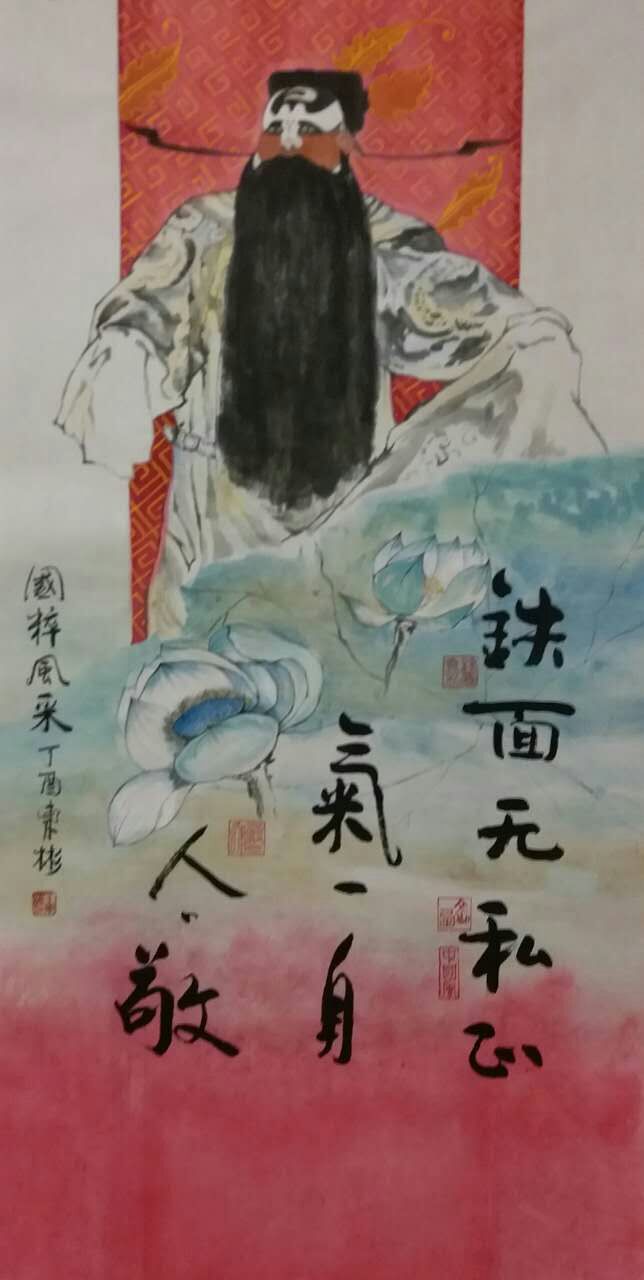 鉄面无私正
氣一身
人々敬
國粹風采丁酉彬